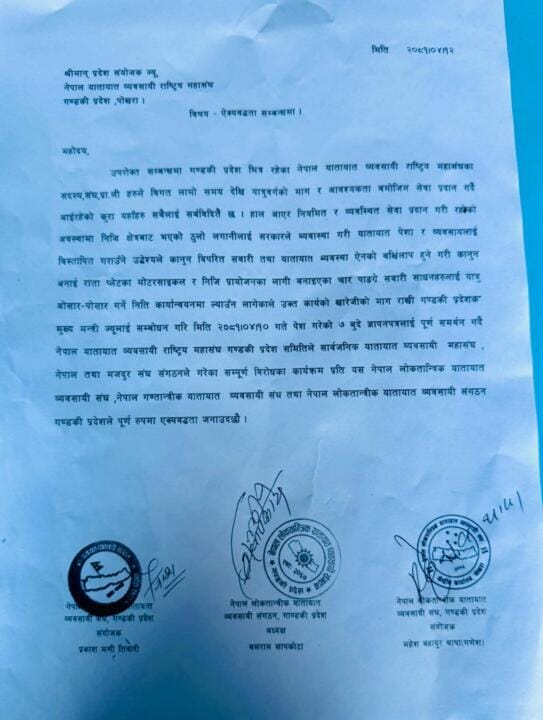 मिति २०८१।०४।१२
श्रीमान् प्रदेश संयोजक ज्यू,
नेपाल यातायात व्यवसायी राष्ट्रिय महासंघ
गण्डकी प्रदेश ,पोखरा ।
विषय - ऐक्यबद्धता सम्बन्धमा ।
महोदय,
उपरोक्त सम्बन्धमा गण्डकी प्रदेश भित्र रहेका नेपाल यातायात व्यवसायी राष्ट्रिय महासंघका
सदस्य,संघ,प्रा.ली हरुले विगत लामो समय देखि यात्रुवर्गको माग र आवश्यकता बमोजिम सेवा प्रदान गर्दै
आईरहेको कुरा यहाँहरु सबैलाई सर्वविदितै छ । हाल आएर नियमित र व्यवस्थित सेवा प्रदान गरी रहेको
अवस्थामा निजि क्षेत्रबाट भएको ठुलो लगानीलाई सरकारले व्यवास्था गरी यातायात पेशा र व्यवसायलाई
विस्तापित गराउँने उद्धेश्यले कानुन विपरित सवारी तथा यातायात व्यवस्था ऐनको बर्खिलाप हुने गरी कानुन
बनाई राता प्लेटका मोटरसाइकल र निजि प्रायोजनका लागी बनाइएका चार पाङग्रे सवारी साधनहरुलाई यात्रु
ओसार-पोसार गर्ने निति कार्यान्वयनमा ल्याउँन लागेकाले उक्त कार्यको खारेजीको माग राखी गण्डकी प्रदेशका
मुख्य मन्त्री ज्यूलाई सम्बोधन गरि मिति २०८१।०४।१० गते पेश गरेको ७ बुदे ज्ञापनपत्रलाई पूर्ण समर्थन गर्दै
नेपाल यातायात व्यवसायी राष्ट्रिय महासंघ गण्डकी प्रदेश समितिले सार्वजनिक यातायात व्यवसायी महासंघ ,
नेपाल तथा मजदुर संघ संगठनले गरेका सम्पूर्ण विरोधका कार्यक्रम प्रति यस नेपाल लोकतान्त्रिक यातायात
व्यवसायी संघ ,नेपाल गणतान्त्रीक यातायात व्यवसायी संघ तथा नेपाल लोकतान्त्रीक यातायात व्यवसायी संगठन
गण्डकी प्रदेशले पूर्ण रुपमा एक्यबद्धता जनाउदछौ ।
नेपाल लोकतान्त्रिक यातायात
व्यवसायी संगठन, गाण्डकी प्रदेश
अध्यक्ष
बलराम सापकोटा
व्यवसायी संघ, गण्डकी प्रदेश
संयोजक
प्रकाश मणी तिवारी
नेपाल लोकतान्त्रिक यातायात
व्यवसायी संघ, गण्डकी प्रदेश
संयोजक
महेश बहादुर थापा(गणेश)